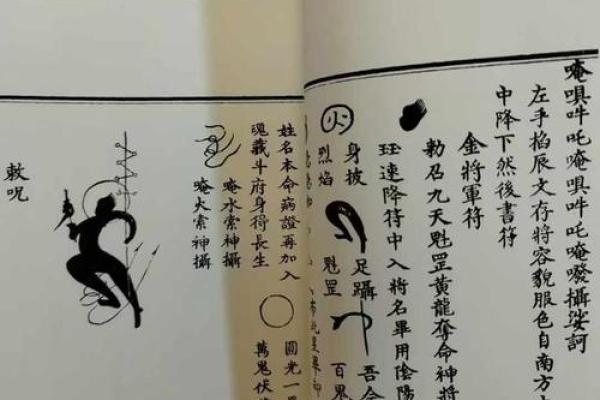 唵吽吒唵吽吒唵攝娑訶
左手掐辰文存將容貌服色自南方
中降下然後書符
金將軍符
勅召九天魁罡黃龍奪命神將
速降符中入將名畢用陰陽
身披 足躡 吾
火 烈焰 魁罡 百鬼
姓名本命病證再加入 圓光一
魂藏斗府身得長生 萬鬼伏
唵水索神攝
唵火索神攝
敕呪